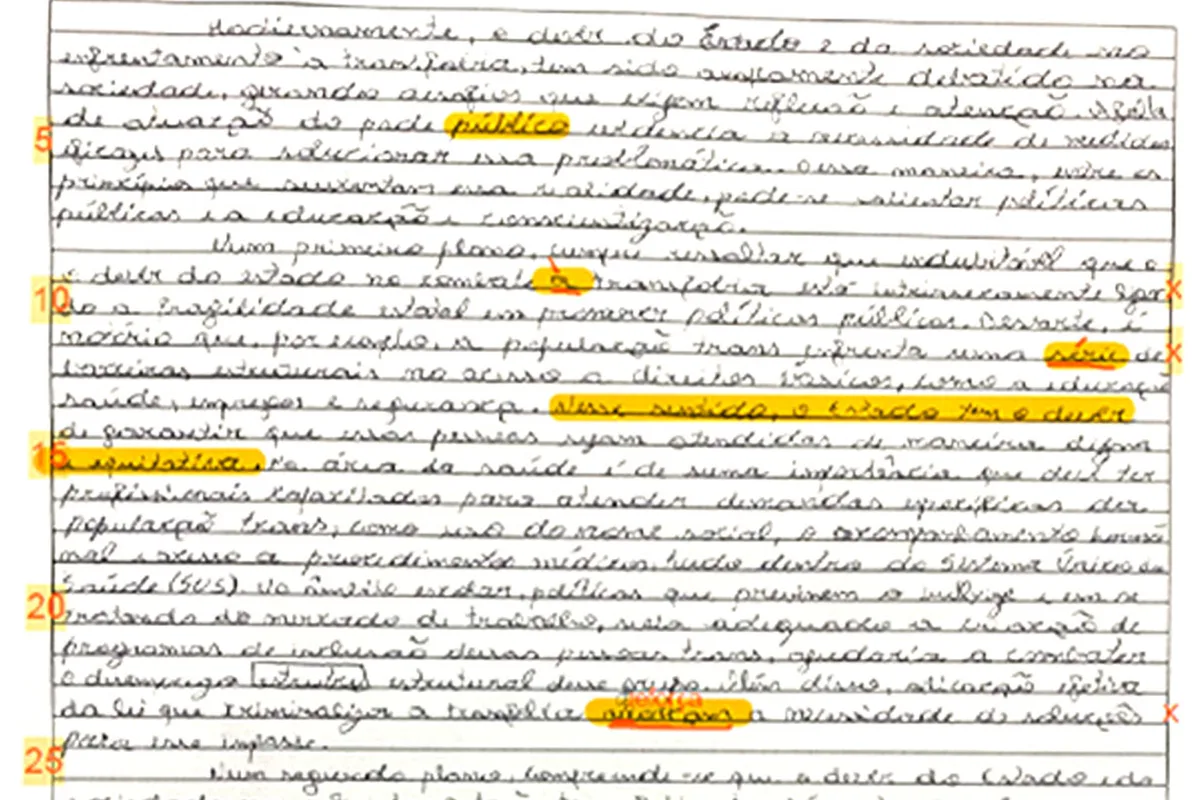 Hodiernamente, o dever do Estado e da sociedade no
enfrentamento à transfobia, tem sido amplamente debatido na
sociedade, gerando desafios que exigem reflexão e atenção. A falta
5 de atuação do pode público evidencia a necessidade de medidas
eficazes para solucionar essa problemática. Dessa maneira, entre os
princípios que sustentam essa realidade, pode-se salientar políticas
públicas e a educação e conscientização.
Num primeiro plano, cumpre ressaltar que indubitável que o
o dever do estado no combate a transfobia está intrinsecamente liga x
10 do a fragilidade estatal em promover políticas públicas. Destarte, é
notório que, por exemplo, a população trans enfrenta uma série de x
barreiras estruturais no acesso a direitos básicos, como a educação
saúde, empregos e segurança. Nesse sentido, o Estado tem o dever
de garantir que essas pessoas sejam atendidas de maneira digna
15 e equitativa. Na área da saúde é de suma importância que deve ter
profissionais capacitados para atender demandas específicas da
população trans, como uso do nome social, o acompanhamento hormo
nal e acesso a procedimentos médicos, tudo dentro do Sistema Único de
Saúde (SUS). No âmbito escolar, políticas que previnem o bullying e em se
20 tratando do mercado de trabalho, seria adequado a criação de
programas de inclusão dessas pessoas trans, ajudaria a combater
o desemprego estrutural desse grupo. Além disso, aplicação efetiva
da lei que criminaliza a transfobia a necessidade de soluções x
para esse impasse.
25 Num segundo plano, compreende-se que o dever do Estado e da